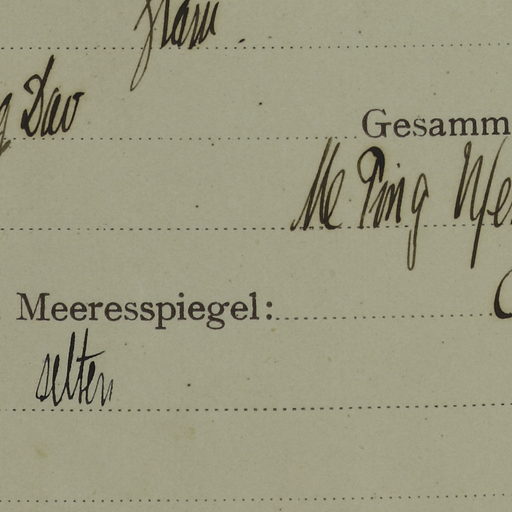 Siam.
g Dao
Gesamm
Me Ping
Meeresspiegel:
selten